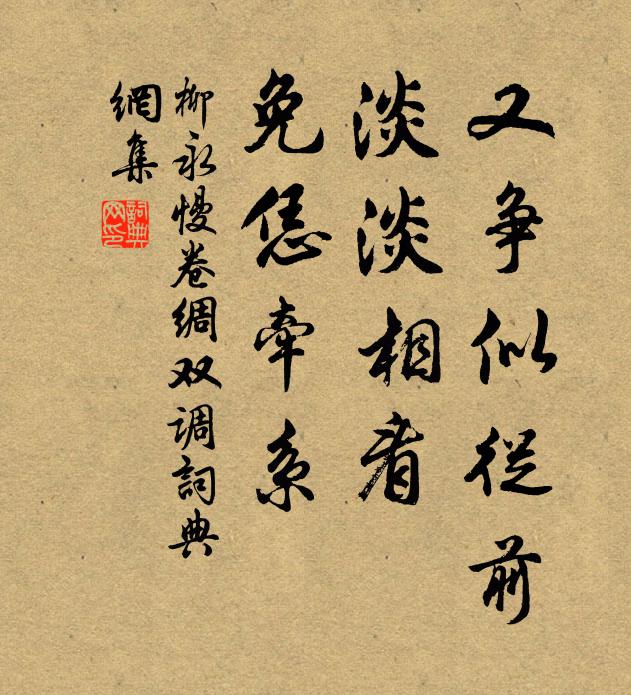 又争似從前
淡淡相看
免恁牽系
柳永慢卷綢双调詞典
網集
詞典
网印